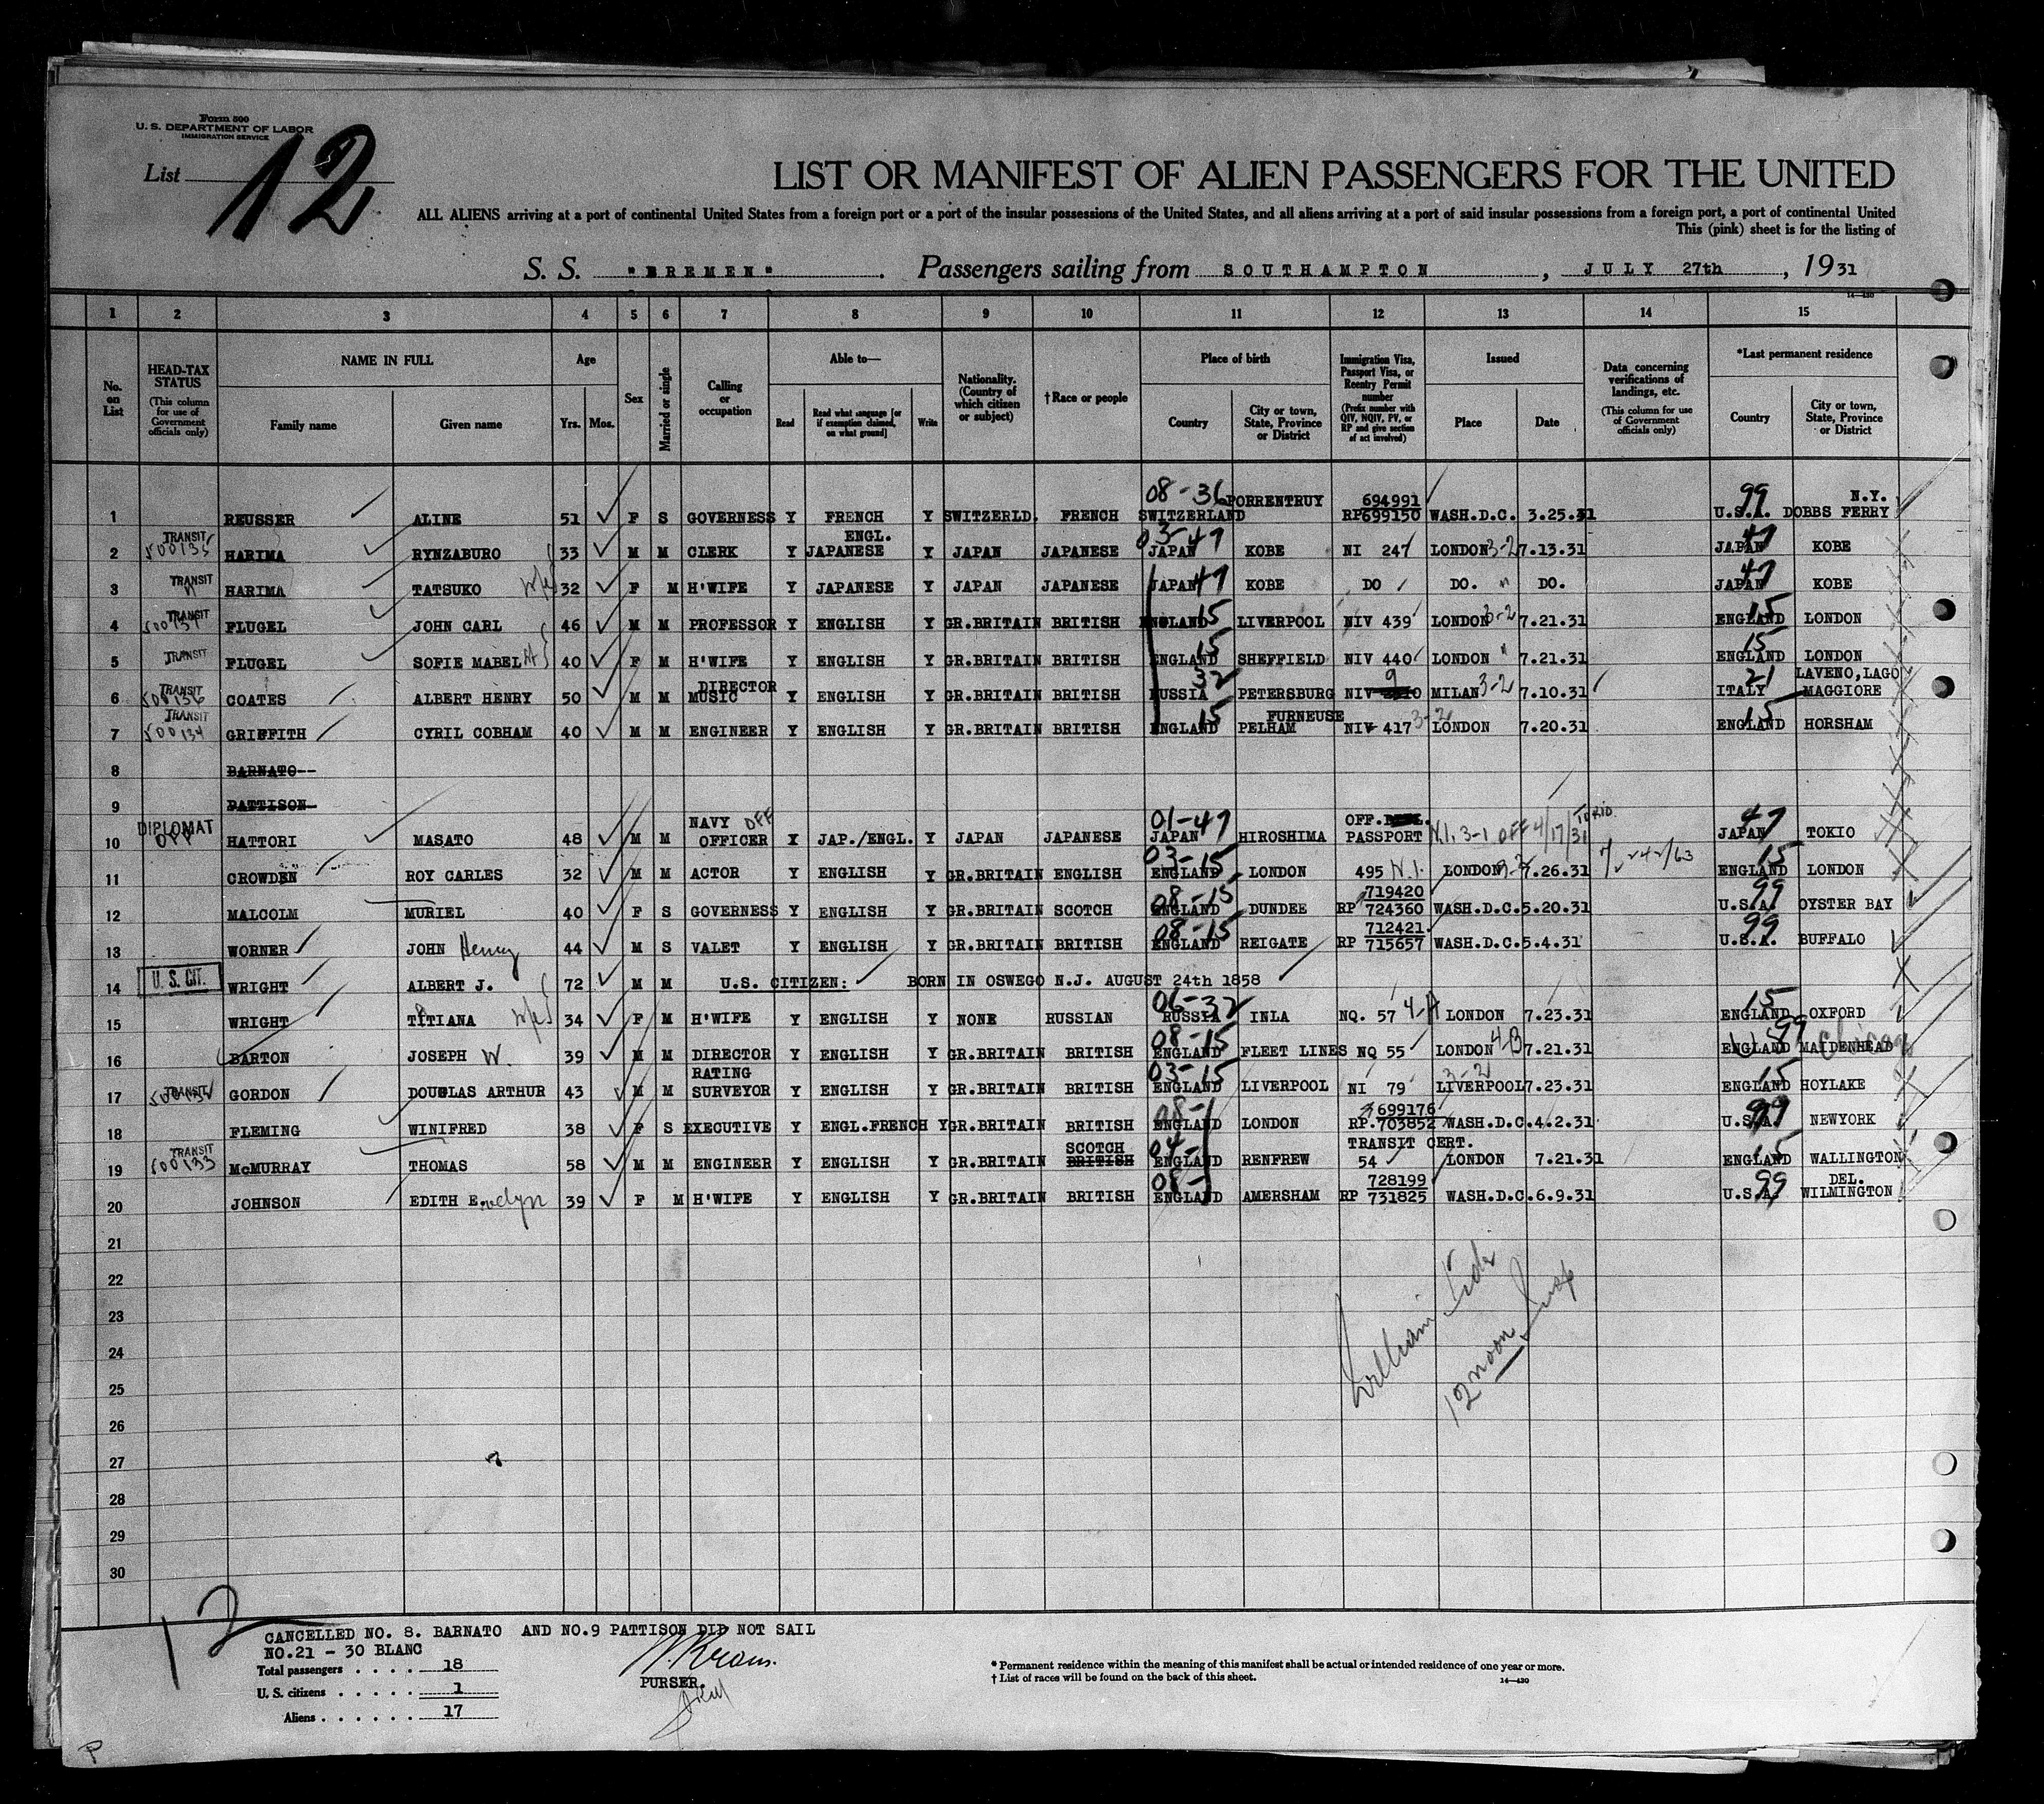 Form 500
U. S. DEPARTMENT OF LABOR
IMMIGRATION SERVICE
List 12
LIST OR MANIFEST OF ALIEN PASSENGERS FOR THE UNITED
ALL ALIENS arriving at a port of continental United States from a foreign port or a port of the insular possessions of the United States, and all aliens arriving at a port of said insular possessions from a foreign port, a port of continental United
This (pink) sheet is for the listing of
S. S. "BREMEN" . Passengers sailing from SOUTHAMPTON , JULY 27th , 1931
14—430
1 2 3 4 5 6 7 8 9 10 11 12 13 14 15
No. on List
HEAD-TAX STATUS (This column for use of Government officials only)
NAME IN FULL
Family name Given name
Age Yrs. Mos.
Sex
Married or single
Calling or occupation
Able to— Read Read what language [or if exemption claimed, on what ground] Write
Nationality. (Country of which citizen or subject)
† Race or people
Place of birth Country City or town, State, Province or District
Immigration Visa, Passport Visa, or Reentry Permit number (Prefix number with QIV, NQIV, PV, or RP and give section of act involved)
Issued Place Date
Data concerning verifications of landings, etc. (This column for use of Government officials only)
*Last permanent residence Country City or town, State, Province or District
1 REUSSER ALINE 51 F S GOVERNESS Y FRENCH Y SWITZERLD. FRENCH 08-36 SWITZERLAND PORRENTRUY 694991 RP699150 WASH.D.C. 3.25.31 99 U.S.A. N.Y. DOBBS FERRY
2 TRANSIT 500135 HARIMA RYNZABURO 33 M M CLERK Y ENGL. JAPANESE Y JAPAN JAPANESE 03-47 JAPAN KOBE NI 247 LONDON 3-2 7.13.31 47 JAPAN KOBE
3 TRANSIT " HARIMA TATSUKO wife 32 F M H'WIFE Y JAPANESE Y JAPAN JAPANESE JAPAN 47 KOBE DO DO. " DO. 47 JAPAN KOBE
4 TRANSIT 500137 FLUGEL JOHN CARL 46 M M PROFESSOR Y ENGLISH Y GR.BRITAIN BRITISH ENGLAND 15 LIVERPOOL NIV 439 LONDON 3-2 7.21.31 15 ENGLAND LONDON
5 TRANSIT FLUGEL SOFIE MABEL 40 F M H'WIFE Y ENGLISH Y GR.BRITAIN BRITISH 15 ENGLAND SHEFFIELD NIV 440 LONDON " 7.21.31 15 ENGLAND LONDON
6 TRANSIT 500136 COATES ALBERT HENRY 50 M M MUSIC DIRECTOR Y ENGLISH Y GR.BRITAIN BRITISH 32 RUSSIA PETERSBURG NIV 9 MILAN 3-2 7.10.31 21 ITALY LAVENO, LAGO MAGGIORE
7 TRANSIT 500134 GRIFFITH CYRIL COBHAM 40 M M ENGINEER Y ENGLISH Y GR.BRITAIN BRITISH 15 ENGLAND FURNEUSE PELHAM NIV 417 3-2 LONDON 7.20.31 15 ENGLAND HORSHAM
8 BARNATO--
9 PATTISON
10 DIPLOMAT OFF HATTORI MASATO 48 M M NAVY OFFICER OFF Y JAP./ENGL. Y JAPAN JAPANESE 01-47 JAPAN HIROSHIMA OFF. PASSPORT N.I. 3-1 OFF 4/17/31 TOKIO 47 JAPAN TOKIO
11 CROWDEN ROY CARLES 32 M M ACTOR Y ENGLISH Y GR.BRITAIN ENGLISH 03-15 ENGLAND LONDON 495 N.I. LONDON 3-2 7.26.31 15 ENGLAND LONDON
12 MALCOLM MURIEL 40 F S GOVERNESS Y ENGLISH Y GR.BRITAIN SCOTCH 08-15 ENGLAND DUNDEE 719420 RP 724360 WASH.D.C. 5.20.31 99 U.S.A. OYSTER BAY
13 WORNER JOHN Henry 44 M S VALET Y ENGLISH Y GR.BRITAIN BRITISH 08-15 ENGLAND REIGATE 712421. RP 715657 WASH.D.C. 5.4.31 99 U.S.A. BUFFALO
14 U. S. CIT. WRIGHT ALBERT J. 72 M M U.S. CITIZEN: BORN IN OSWEGO N.J. AUGUST 24th 1858
15 WRIGHT TITIANA wife 34 F M H'WIFE Y ENGLISH Y NONE RUSSIAN 06-32 RUSSIA INLA NQ. 57 4-A LONDON 7.23.31 15 ENGLAND OXFORD
16 BARTON JOSEPH W. 39 M M DIRECTOR Y ENGLISH Y GR.BRITAIN BRITISH 08-15 ENGLAND FLEET LINES NQ 55 LONDON 4-B 7.21.31 U S 99 ENGLAND MAIDENHEAD Chicago
17 TRANSIT GORDON DOUGLAS ARTHUR 43 M M RATING SURVEYOR Y ENGLISH Y GR.BRITAIN BRITISH 03-15 ENGLAND LIVERPOOL NI 79 3-2 LIVERPOOL 7.23.31 15 ENGLAND HOYLAKE
18 FLEMING WINIFRED 38 F S EXECUTIVE Y ENGL.FRENCH Y GR.BRITAIN BRITISH 08- ENGLAND LONDON 699176 RP.703852 WASH.D.C. 4.2.31 99 U.S.A. NEWYORK
19 TRANSIT 500133 McMURRAY THOMAS 58 M M ENGINEER Y ENGLISH Y GR.BRITAIN SCOTCH BRITISH 04- ENGLAND RENFREW TRANSIT CERT. 54 LONDON 7.21.31 15 ENGLAND WALLINGTON
20 JOHNSON EDITH Evelyn 39 F M H'WIFE Y ENGLISH Y GR.BRITAIN BRITISH 08- ENGLAND AMERSHAM 728199 RP 731825 WASH.D.C. 6.9.31 99 U.S.A. DEL. WILMINGTON
21
22
23
24
25
26
27
28
29
30
William
12 noon
12
CANCELLED NO. 8. BARNATO AND NO.9 PATTISON DID NOT SAIL
NO.21 - 30 BLANC
Total passengers . . . . 18
U. S. citizens . . . . . 1
Aliens . . . . . . 17
PURSER.
* Permanent residence within the meaning of this manifest shall be actual or intended residence of one year or more.
† List of races will be found on the back of this sheet.
14—430
P